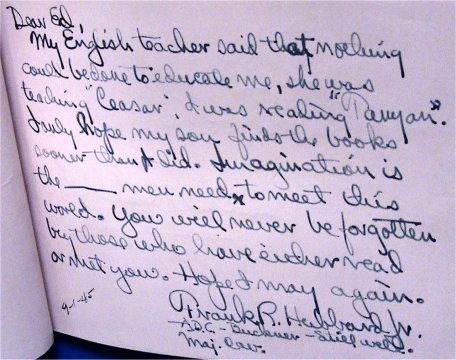 Dear Ed,
My English teacher said that nothing
could be done to educate me, she was
teaching "Ceasar", I was reading "Tarzan".
Truly hope my son finds the books
sooner than I did. Imagination is
the ___ men need x to meet this
world. You will never be forgotten
by those who have either read
or met you. Hope I may again.
9-1-45
Frank R. Hubbard Jr.
A.D.C. - Buckner - Stilwell.
Maj. Cav.